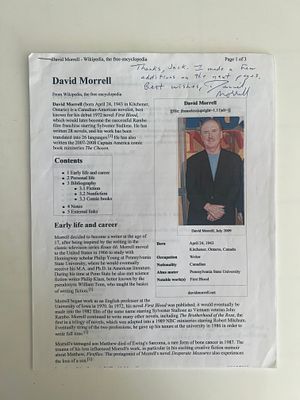 David Morrell - Wikipedia, the free encyclopedia
Page 1 of 3
Thanks, Jack. I made a few
additions on the next pages.
Best wishes, David
Morrell
David Morrell
From Wikipedia, the free encyclopedia
David Morrell (born April 24, 1943 in Kitchener,
Ontario) is a Canadian-American novelist, best
known for his debut 1972 novel First Blood,
which would later become the successful Rambo
film franchise starring Sylvester Stallone. He has
written 28 novels, and his work has been
translated into 26 languages.[1] He has also
written the 2007-2008 Captain America comic
book miniseries The Chosen.
David Morrell
David Morrell, July 2009
Born April 24, 1943
Kitchener, Ontario, Canada
Occupation Writer
Nationality Canadian
Alma mater Pennsylvania State University
Notable work(s) First Blood
davidmorrell.net
Contents
1 Early life and career
2 Personal life
3 Bibliography
3.1 Fiction
3.2 Nonfiction
3.3 Comic books
4 Notes
5 External links
Early life and career
Morrell decided to become a writer at the age of
17, after being inspired by the writing in the
classic television series Route 66. Morrell moved
to the United States in 1966 to study with
Hemingway scholar Philip Young at Pennsylvania
State University, where he would eventually
receive his M.A. and Ph.D. in American literature.
During his time at Penn State he also met science
fiction writer Philip Klass, better known by the
pseudonym William Tenn, who taught the basics
of writing fiction.
Morrell began work as an English professor at the
University of Iowa in 1970. In 1972, his novel First Blood was published; it would eventually be
made into the 1982 film of the same name starring Sylvester Stallone as Vietnam veteran John
Rambo. Morrell continued to write many other novels, including The Brotherhood of the Rose, the
first in a trilogy of novels, which was adapted into a 1989 NBC miniseries starring Robert Mitchum.
Eventually tiring of the two professions, he gave up his tenure at the university in 1986 in order to
write full time.
Morrell's teenaged son Matthew died of Ewing's Sarcoma, a rare form of bone cancer in 1987. The
trauma of his loss influenced Morrell's work, in particular in his exciting creative fiction memoir
about Matthew, Fireflies. The protagonist of Morrell's novel Desperate Measures also experiences
the loss of a son.